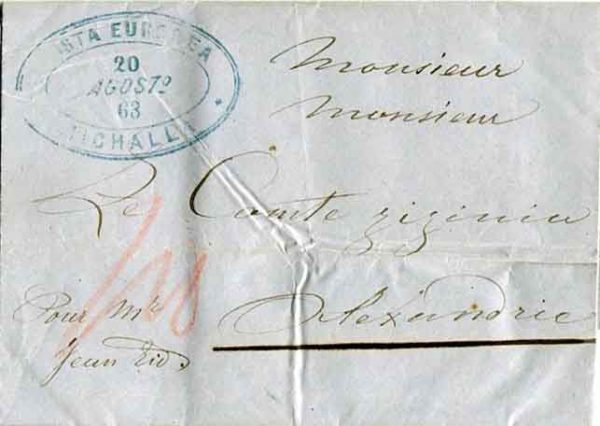 POSTA EUROPEA
20
AGOSTO
63
MICHALLA
Monsieur
Monsieur
Le Comte Zizinia
Alexandrie
Pour Mr
Jean Eid.